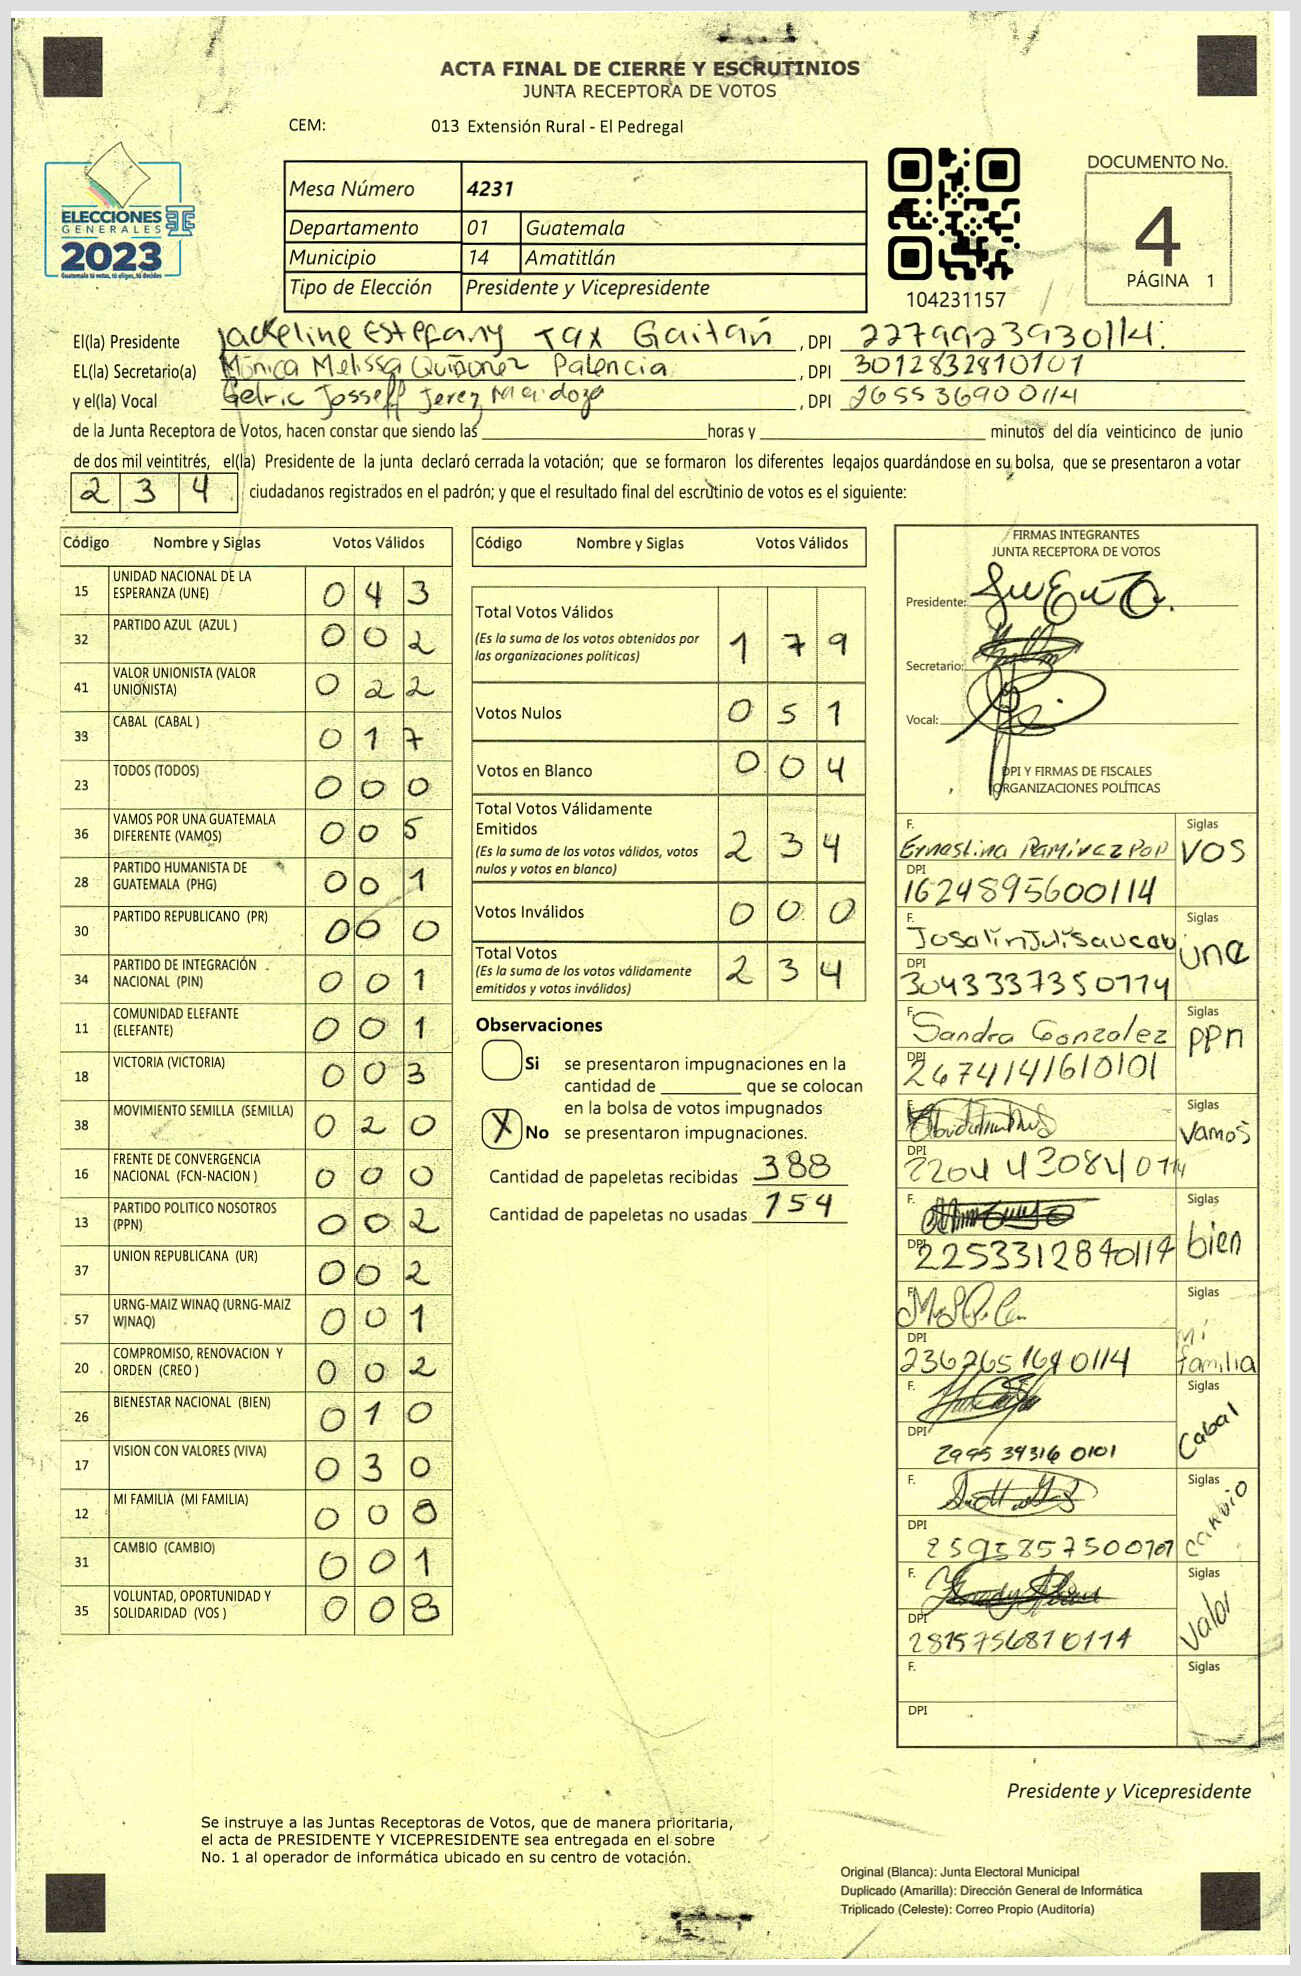 ACTA FINAL DE CIERRE Y ESCRUTINIOS
JUNTA RECEPTORA DE VOTOS
CEM: 013 Extensión Rural - El Pedregal
ELECCIONES
GENERALES
2023
Guatemala tú votas, tú eliges, tú decides
Mesa Número 4231
Departamento 01 Guatemala
Municipio 14 Amatitlán
Tipo de Elección Presidente y Vicepresidente
104231157
DOCUMENTO No.
4
PÁGINA 1
El(la) Presidente Jackeline Estefany Tax Gaitán, DPI 2279923930114.
EL(la) Secretario(a) Mónica Melissa Quiñonez Palencia, DPI 3012832810101
y el(la) Vocal Gelric Josseff Jerez Mendoza, DPI 2655369000114
de la Junta Receptora de Votos, hacen constar que siendo las ____ horas y ____ minutos del día veinticinco de junio
de dos mil veintitrés, el(la) Presidente de la junta declaró cerrada la votación; que se formaron los diferentes legajos guardándose en su bolsa, que se presentaron a votar
234 ciudadanos registrados en el padrón; y que el resultado final del escrutinio de votos es el siguiente:
Código Nombre y Siglas Votos Válidos
15 UNIDAD NACIONAL DE LA ESPERANZA (UNE) 043
32 PARTIDO AZUL (AZUL ) 002
41 VALOR UNIONISTA (VALOR UNIONISTA) 022
33 CABAL (CABAL ) 017
23 TODOS (TODOS) 000
36 VAMOS POR UNA GUATEMALA DIFERENTE (VAMOS) 005
28 PARTIDO HUMANISTA DE GUATEMALA (PHG) 001
30 PARTIDO REPUBLICANO (PR) 000
34 PARTIDO DE INTEGRACIÓN NACIONAL (PIN) 001
11 COMUNIDAD ELEFANTE (ELEFANTE) 001
18 VICTORIA (VICTORIA) 003
38 MOVIMIENTO SEMILLA (SEMILLA) 020
16 FRENTE DE CONVERGENCIA NACIONAL (FCN-NACION ) 000
13 PARTIDO POLITICO NOSOTROS (PPN) 002
37 UNION REPUBLICANA (UR) 002
57 URNG-MAIZ WINAQ (URNG-MAIZ WINAQ) 001
20 COMPROMISO, RENOVACION Y ORDEN (CREO ) 002
26 BIENESTAR NACIONAL (BIEN) 010
17 VISION CON VALORES (VIVA) 030
12 MI FAMILIA (MI FAMILIA) 008
31 CAMBIO (CAMBIO) 001
35 VOLUNTAD, OPORTUNIDAD Y SOLIDARIDAD (VOS ) 008
Código Nombre y Siglas Votos Válidos
Total Votos Válidos 179
(Es la suma de los votos obtenidos por
las organizaciones políticas)
Votos Nulos 051
Votos en Blanco 004
Total Votos Válidamente
Emitidos 234
(Es la suma de los votos válidos, votos
nulos y votos en blanco)
Votos Inválidos 000
Total Votos 234
(Es la suma de los votos válidamente
emitidos y votos inválidos)
Observaciones
Si se presentaron impugnaciones en la
cantidad de ____ que se colocan
en la bolsa de votos impugnados
X No se presentaron impugnaciones.
Cantidad de papeletas recibidas 388
Cantidad de papeletas no usadas 154
FIRMAS INTEGRANTES
JUNTA RECEPTORA DE VOTOS
Presidente:
Secretario:
Vocal:
DPI Y FIRMAS DE FISCALES
ORGANIZACIONES POLÍTICAS
F. Ernestina Ramírez Pop Siglas VOS
DPI 1624895600114
F. Siglas une
DPI 3043337350114
F. Sandra Gonzalez Siglas ppn
DPI 2674141610101
F. Siglas Vamos
DPI 2204430840114
F. Siglas bien
DPI 2253312840114
F. Siglas Mi familia
DPI 2367651640114
F. Siglas Cabal
DPI 2995393160101
F. Siglas cambio
DPI 2593857500101
F. Siglas Valor
DPI 2815756810114
F. Siglas
DPI
Presidente y Vicepresidente
Se instruye a las Juntas Receptoras de Votos, que de manera prioritaria,
el acta de PRESIDENTE Y VICEPRESIDENTE sea entregada en el sobre
No. 1 al operador de informática ubicado en su centro de votación.
Original (Blanca): Junta Electoral Municipal
Duplicado (Amarilla): Dirección General de Informática
Triplicado (Celeste): Correo Propio (Auditoría)